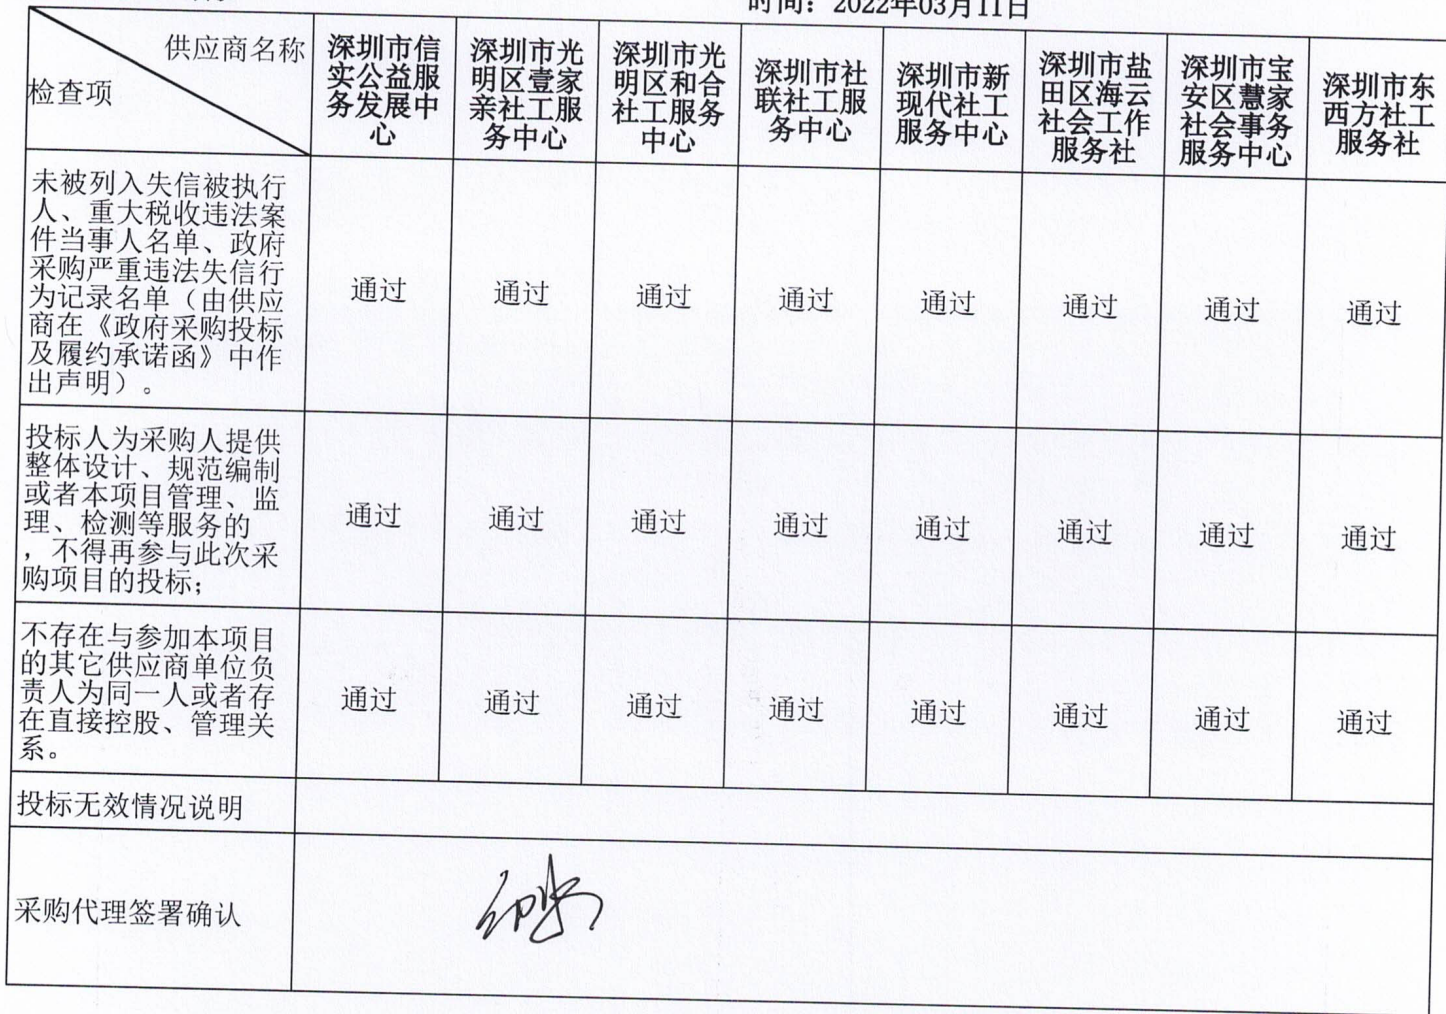 时间：2022年03月11日
供应商名称
检查项
深圳市信
实公益服
务发展中
心
深圳市光
明区壹家
亲社工服
务中心
深圳市光
明区和合
社工服务
中心
深圳市社
联社工服
务中心
深圳市新
现代社工
服务中心
深圳市盐
田区海云
社会工作
服务社
深圳市宝
安区慧家
社会事务
服务中心
深圳市东
西方社工
服务社
未被列入失信被执行
人、重大税收违法案
件当事人名单、政府
采购严重违法失信行
为记录名单（由供应
商在《政府采购投标
及履约承诺函》中作
出声明）。
通过
通过
通过
通过
通过
通过
通过
通过
投标人为采购人提供
整体设计、规范编制
或者本项目管理、监
理、检测等服务的
，不得再参与此次采
购项目的投标；
通过
通过
通过
通过
通过
通过
通过
通过
不存在与参加本项目
的其它供应商单位负
责人为同一人或者存
在直接控股、管理关
系。
通过
通过
通过
通过
通过
通过
通过
通过
投标无效情况说明
采购代理签署确认